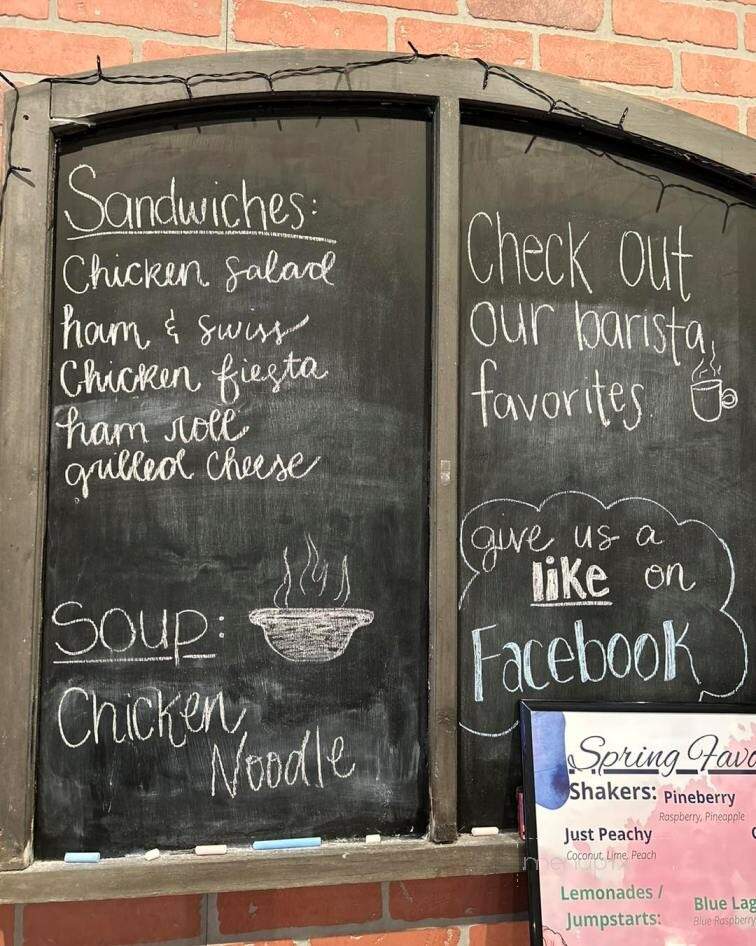 Sandwiches:
Chicken Salad
ham & swiss
Chicken fiesta
ham roll
grilled cheese
Soup:
Chicken
Noodle
Check out
our barista
favorites
give us a
like on
Facebook
Spring Favo
Shakers: Pineberry
Raspberry, Pineapple
Just Peachy
Coconut, Lime, Peach
Lemonades /
Jumpstarts:
Blue Lag
Blue Raspberry